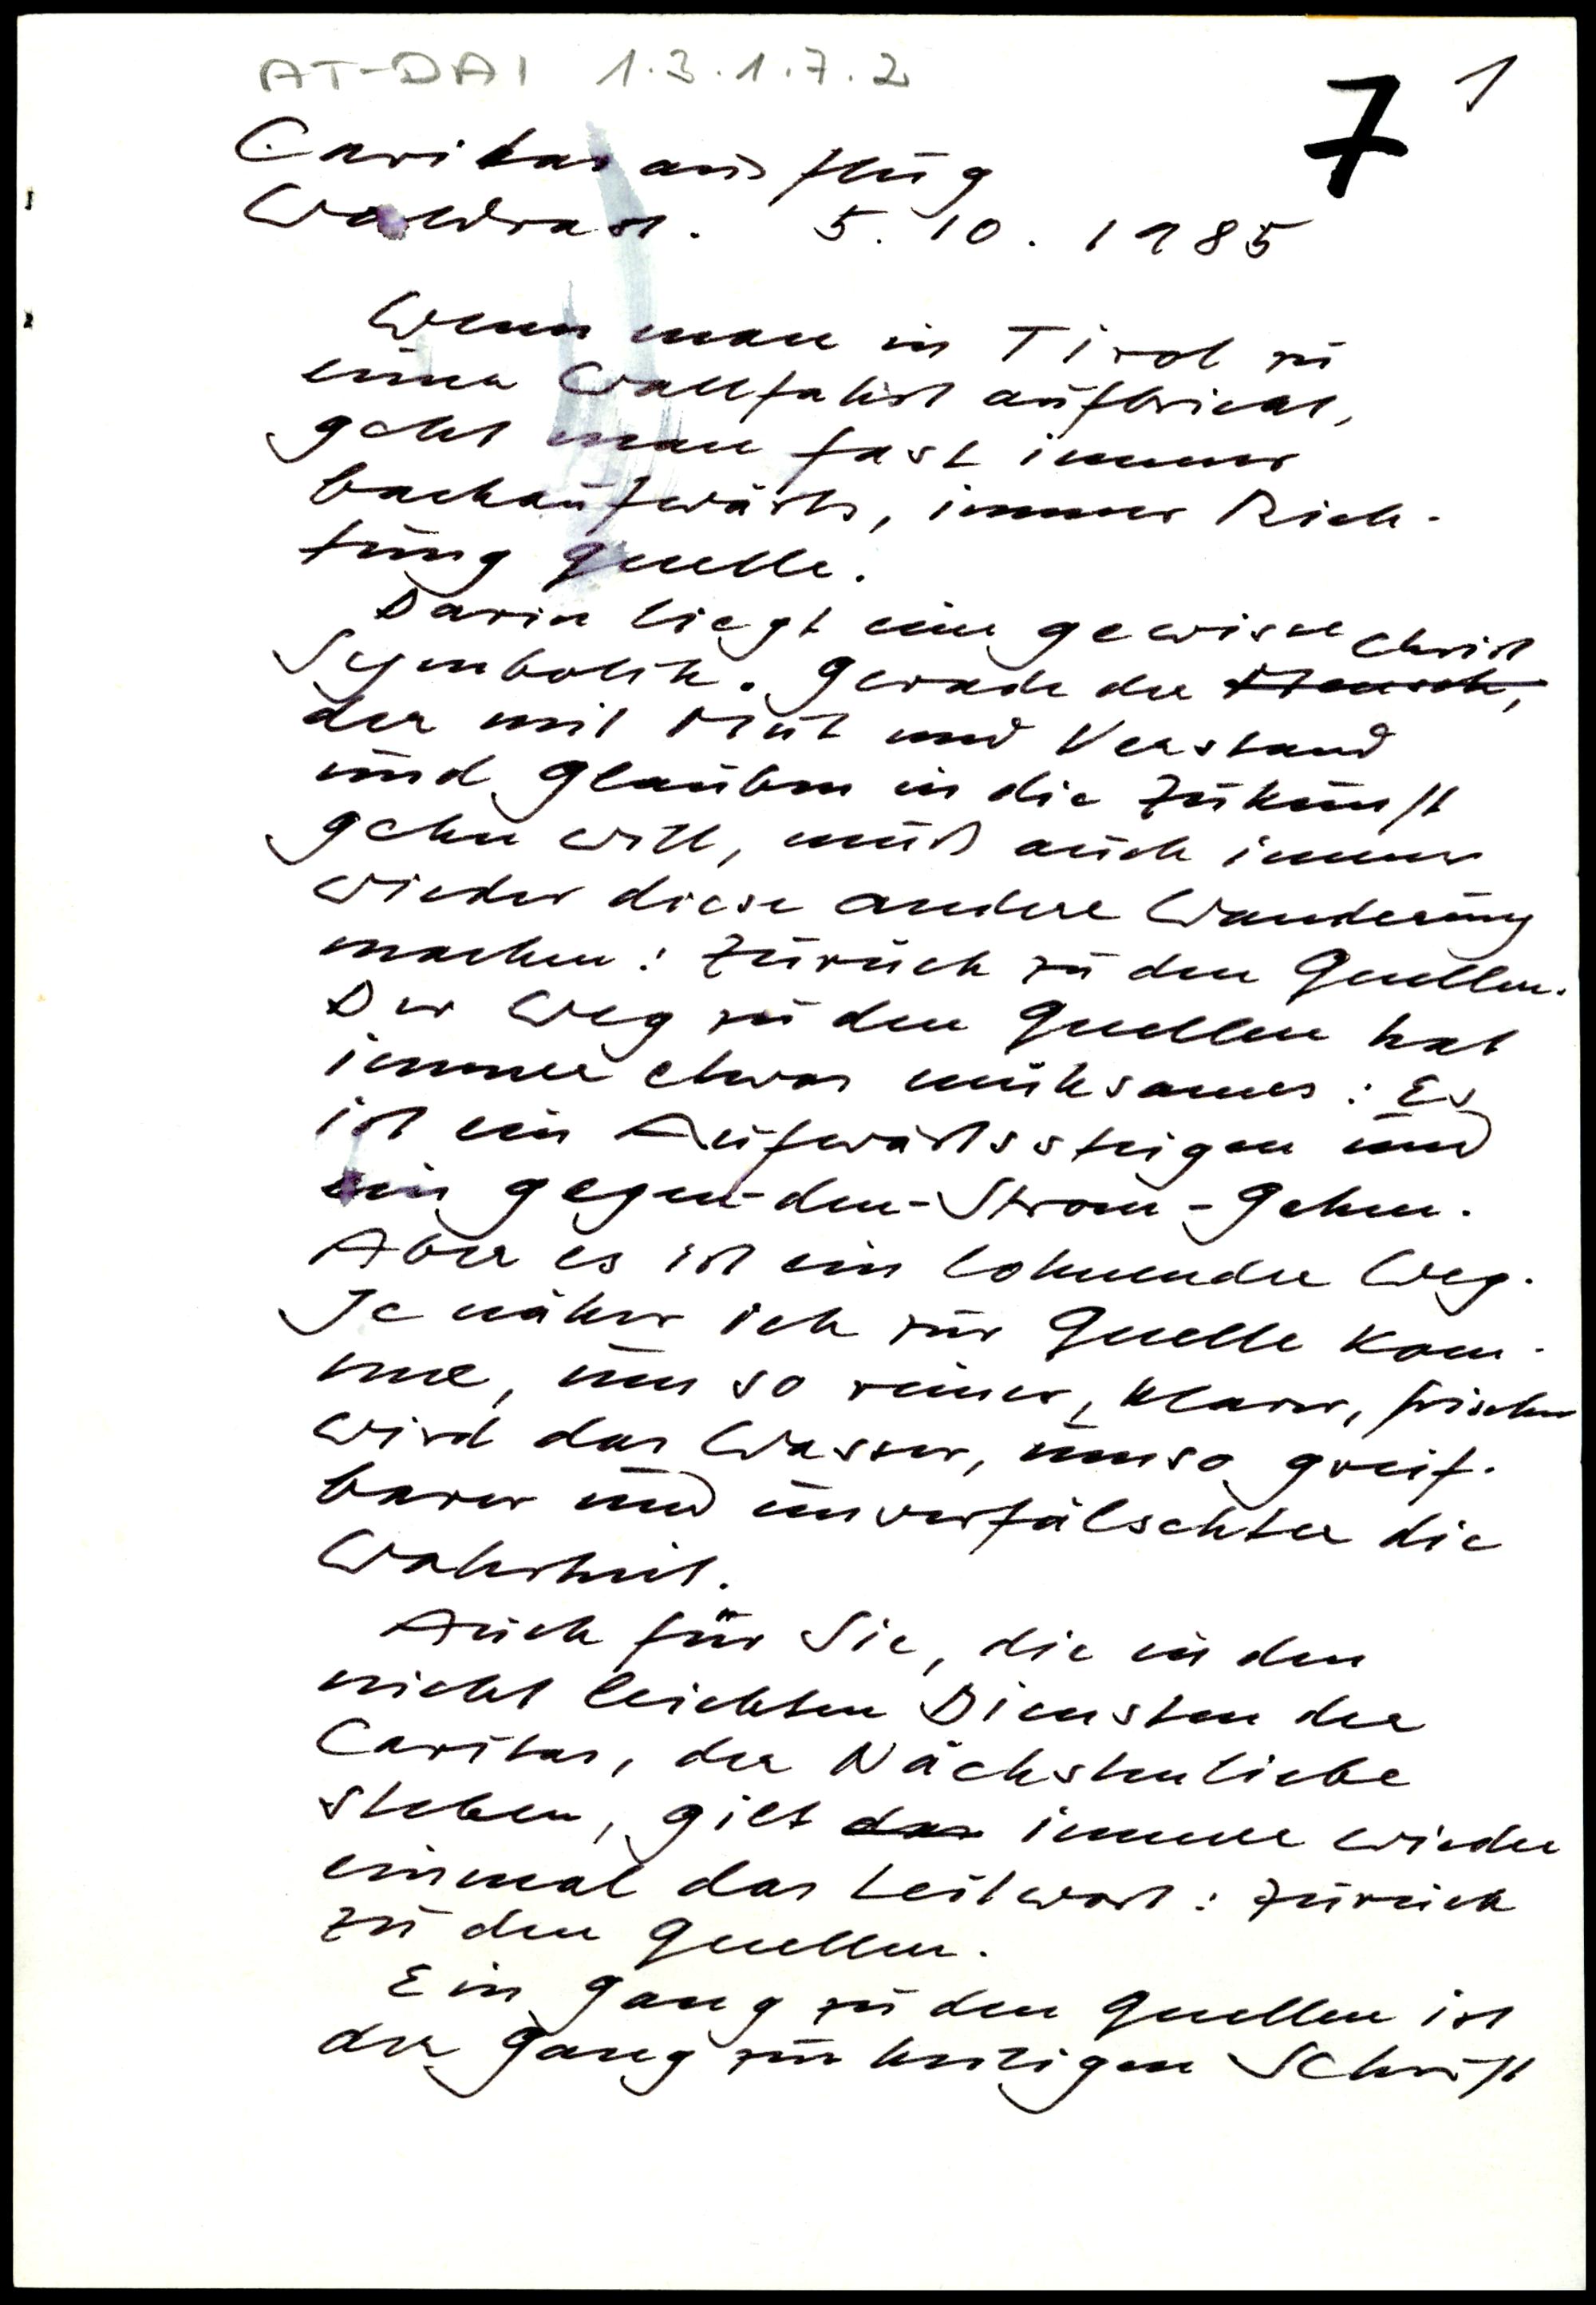 AT-DAI 1.3.1.7.2
7 1
Caritasausflug
Waldrast. 5. 10. 1985
Wenn man in Tirol zu
einer Wallfahrt aufbricht,
geht man fast immer
bachaufwärts, immer Rich-
tung Quelle.
Darin liegt eine gewisse
Symbolik. Gerade der Mensch, Christ
der mit Mut und Verstand
und Glauben in die Zukunft
gehn will, muß auch immer
wieder diese andere Wanderung
machen: Zurück zu den Quellen.
Der Weg zu den Quellen hat
immer etwas mühsames: Es
ist ein Aufwärtssteigen und
ein gegen-den-Strom-Gehen.
Aber es ist ein lohnender Weg.
Je näher ich zur Quelle kom-
me, um so reiner, klarer, frischer
wird das Wasser, umso greif-
barer und unverfälschter die
Wahrheit.
Auch für Sie, die in den
nicht leichten Diensten der
Caritas, der Nächstenliebe
stehen, gilt das immer wieder
einmal das Leitwort: Zurück
zu den Quellen.
Ein Gang zu den Quellen ist
der Gang zur heiligen Schrift